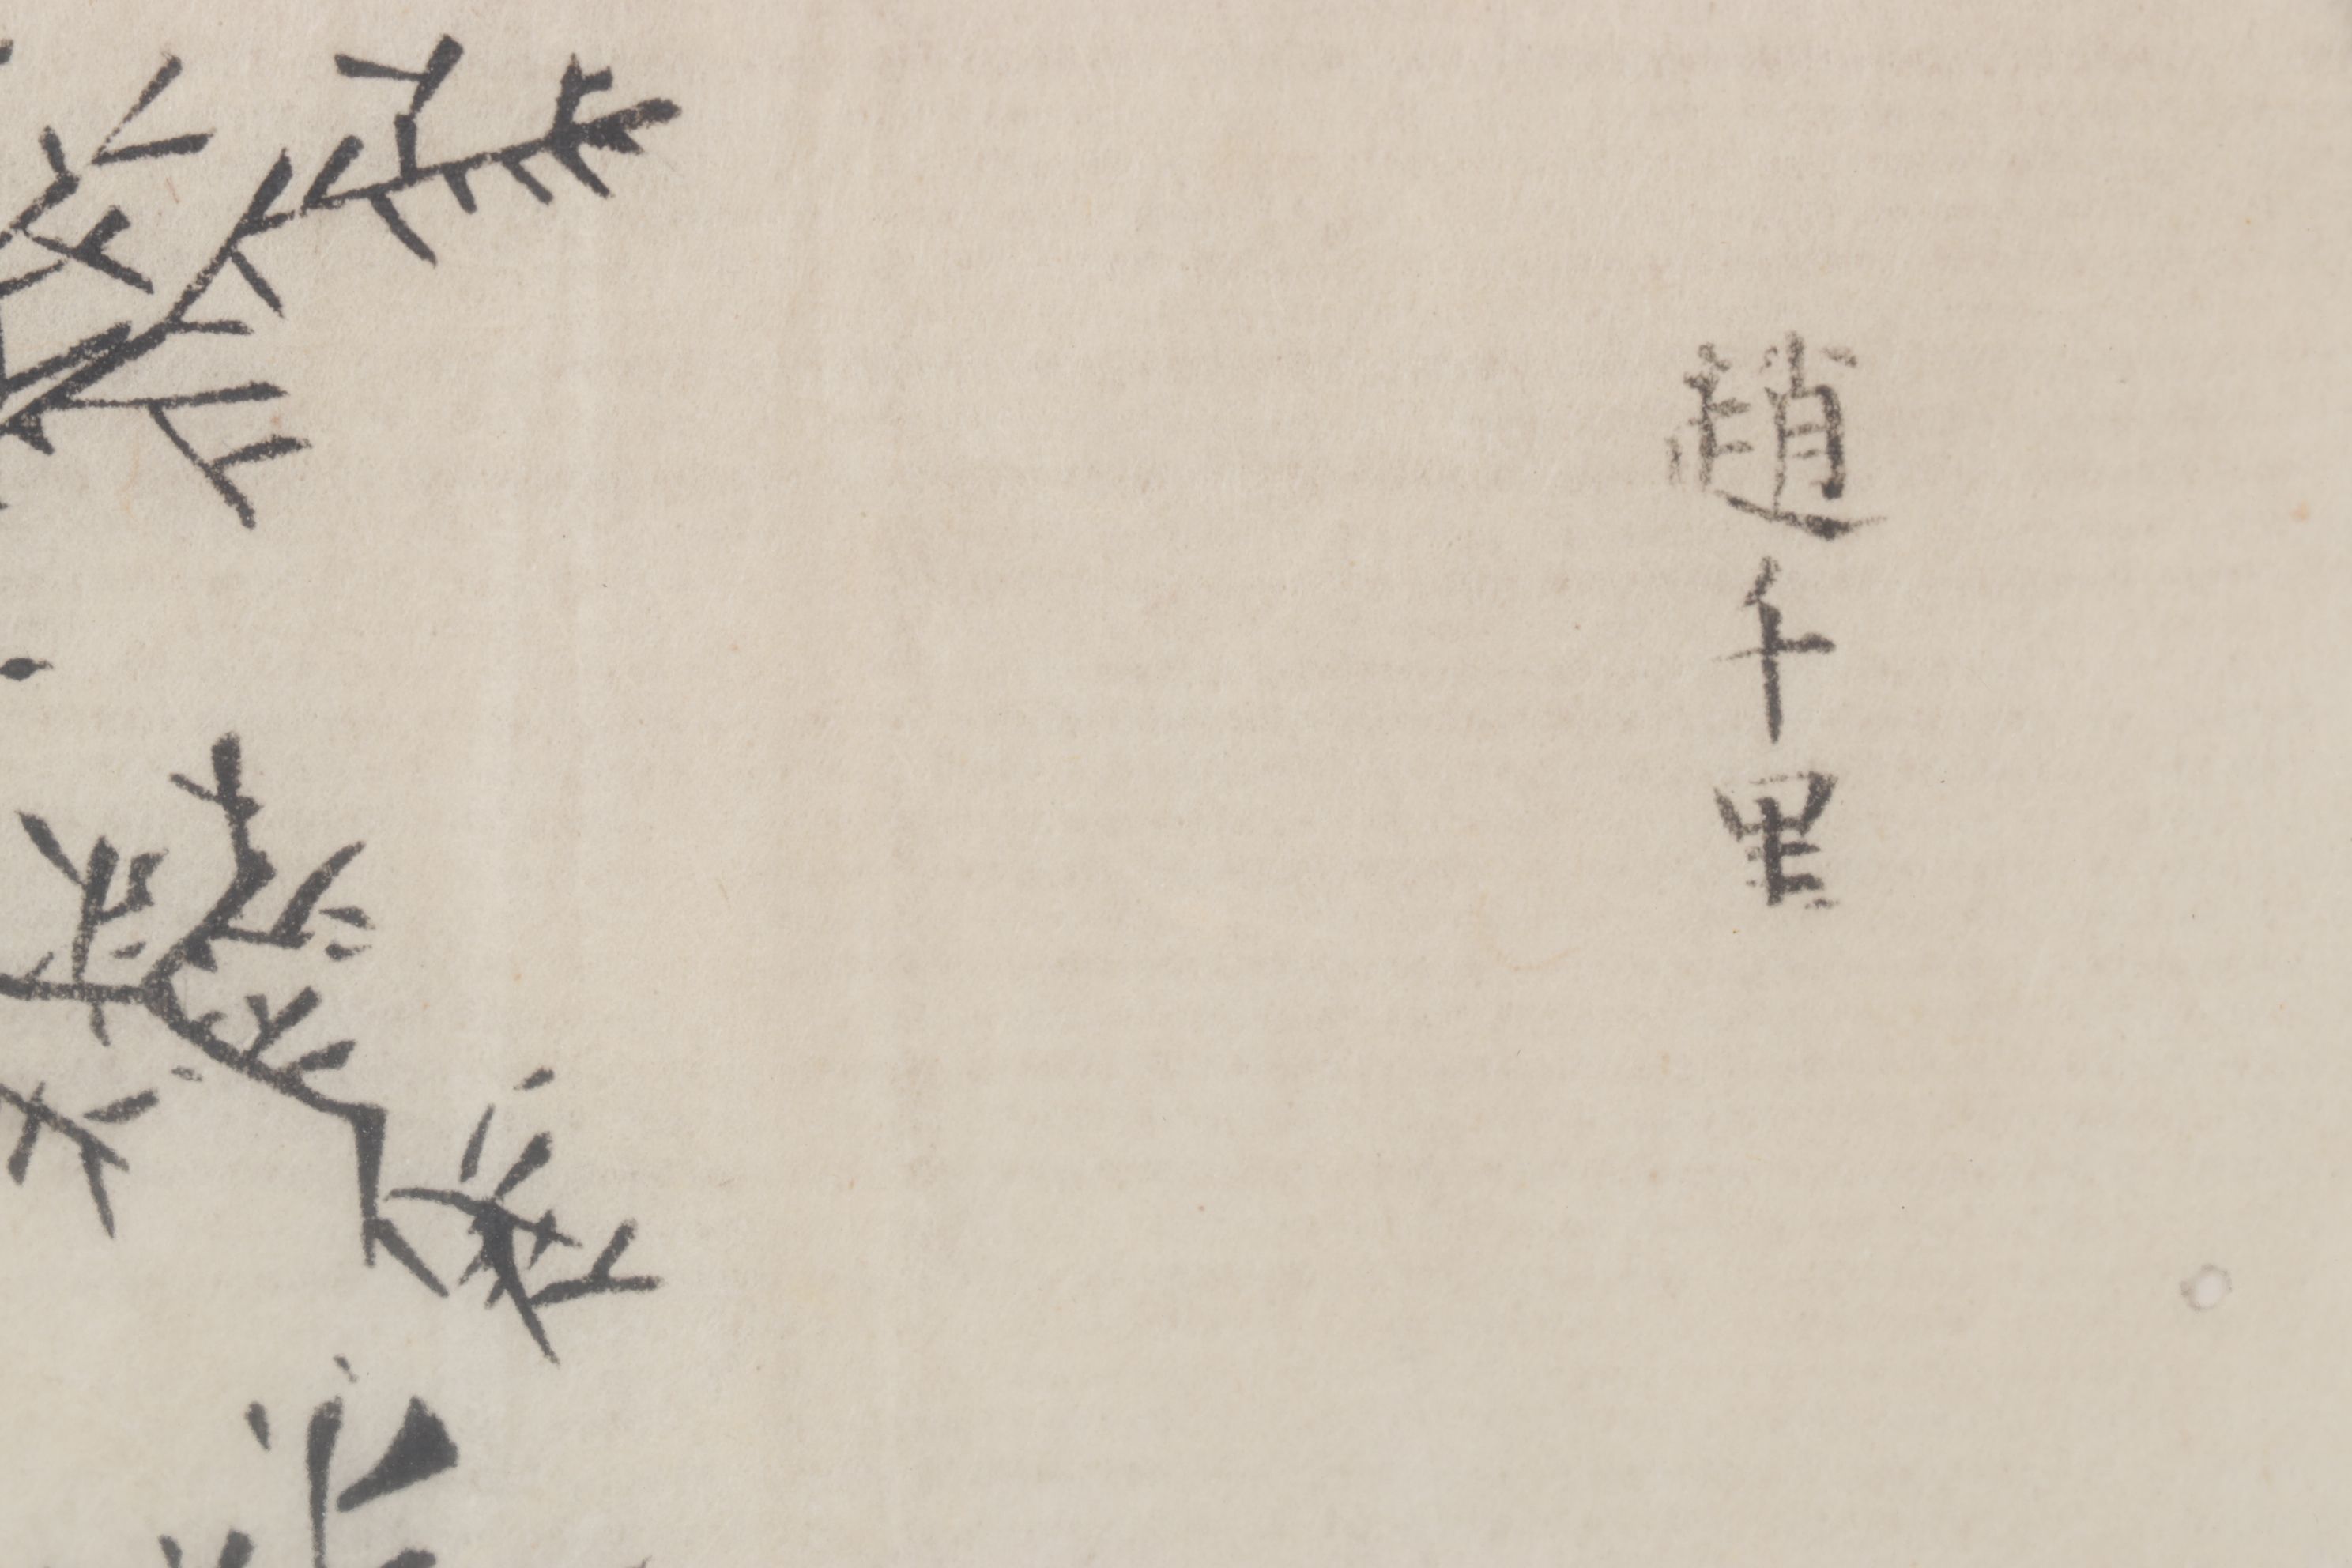 趙千里